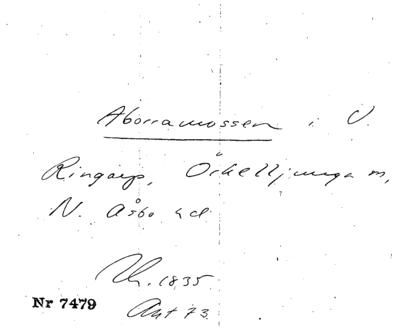 Aborramossen i V.
Ringarp, Örkelljunga sn,
N. Åsbo hd
1835
Nr 7479
Akt 73